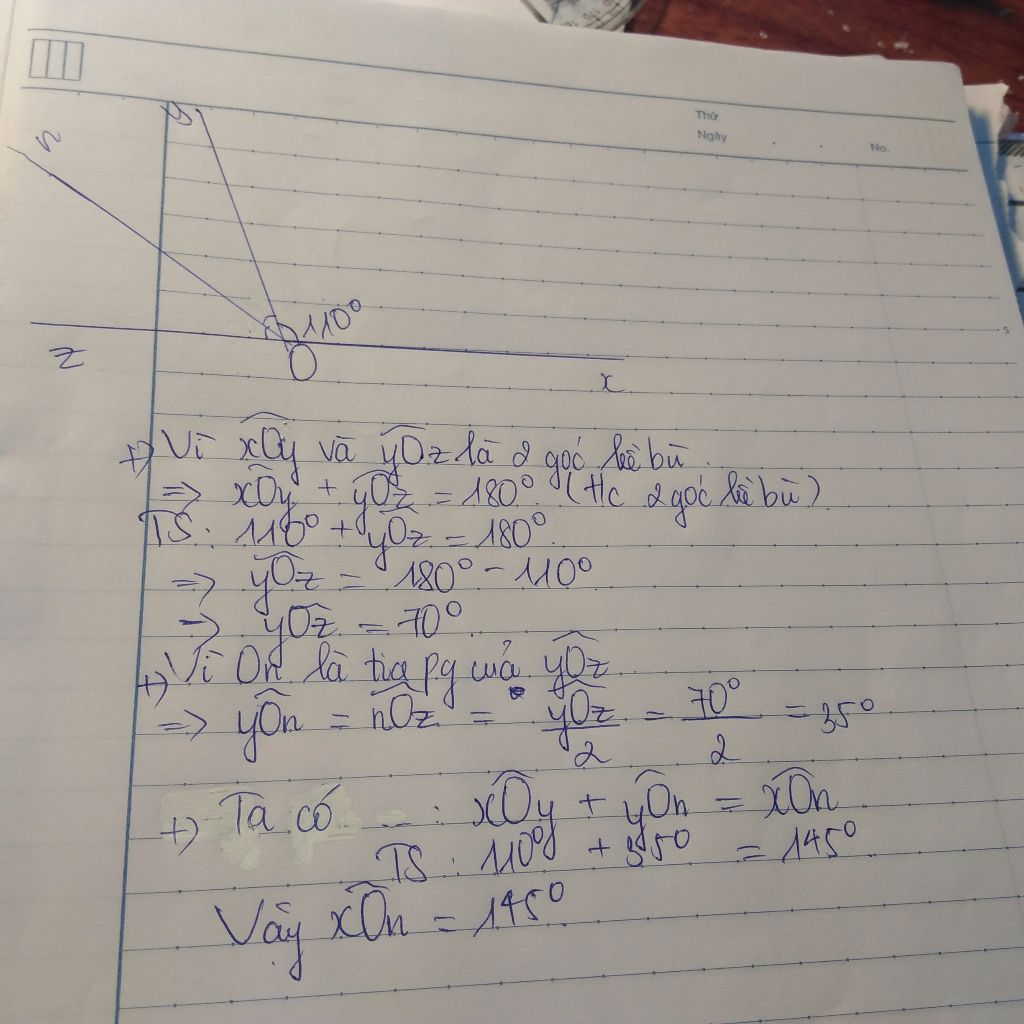 Thứ
Ngày . .
No.
y
n
5
110°
z
O
x
+) Vì xOy và yOz là 2 góc kề bù.
=> xOy + yOz = 180° (t/c 2 góc kề bù)
TS: 110° + yOz = 180°.
=> yOz = 180° - 110°
=> yOz = 70°
+) Vì On là tia pg của yOz
=> yOn = nOz = yOz/2 = 70°/2 = 35°
+) Ta có : xOy + yOn = xOn
TS: 110° + 35° = 145°
Vậy xOn = 145°